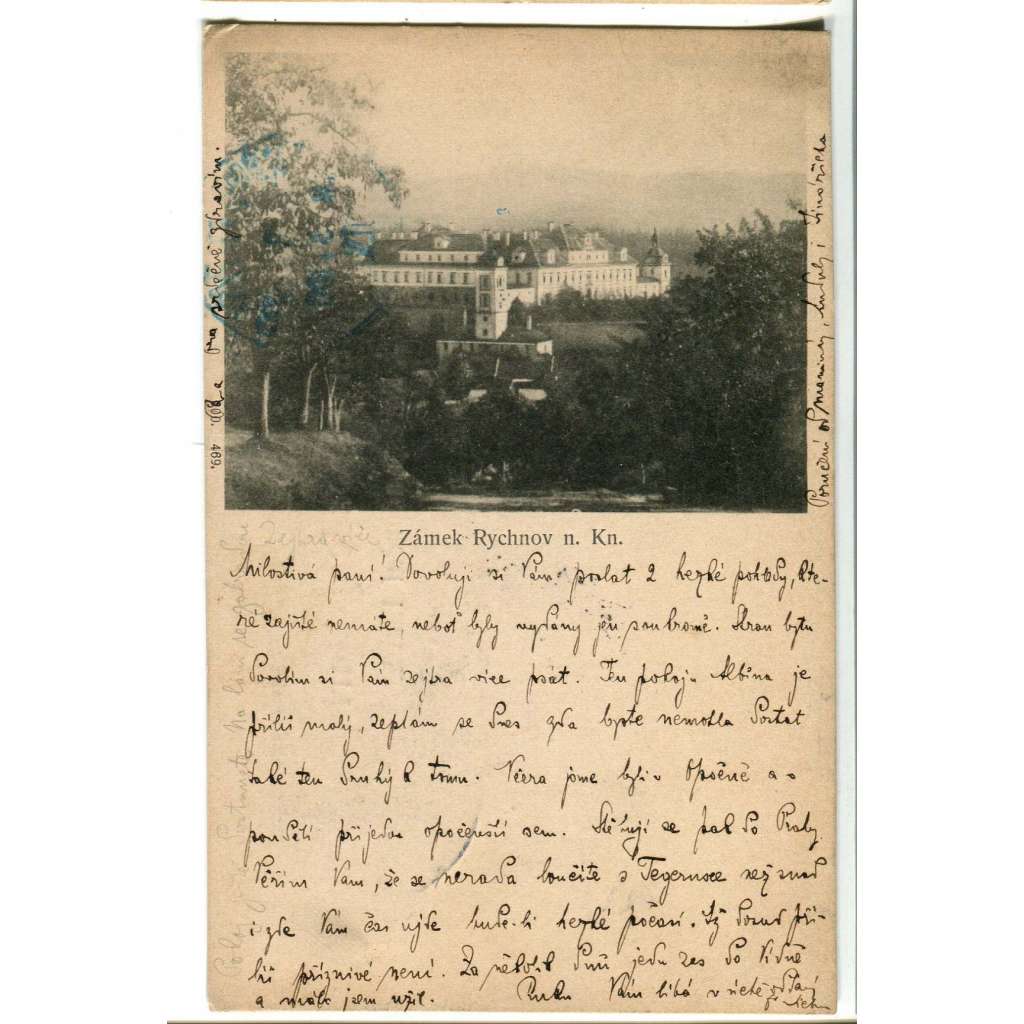 Zámek Rychnov n. Kn.
Milostivá paní! Dovoluji si Vám poslat 2 hezké pohledy, kte-
ré zajisté nemáte, neboť byly vydány jen soukromě. Stran bytu
dovolím si Vám zejtra více psát. Ten pokoj u Albína je
příliš malý, zeptám se dnes zda byste nemohla dostat
také ten druhý k tomu. Včera jsme byli v Opočně a v
pondělí přijedou opočenští sem. Stěhují se pak do Prahy.
Věřím Vám, že se nerada loučíte s Tegernsee než snad
i zde Vám čas ujde bude-li hezké počasí. Až dosud pří-
liš příznivé není. Za několik dnů jedu zas do Vídně
a málo jsem užil. Ruku Vám líbá v úctě oddaný
469.
srdečně zdravím.
Poručení od maminky, i